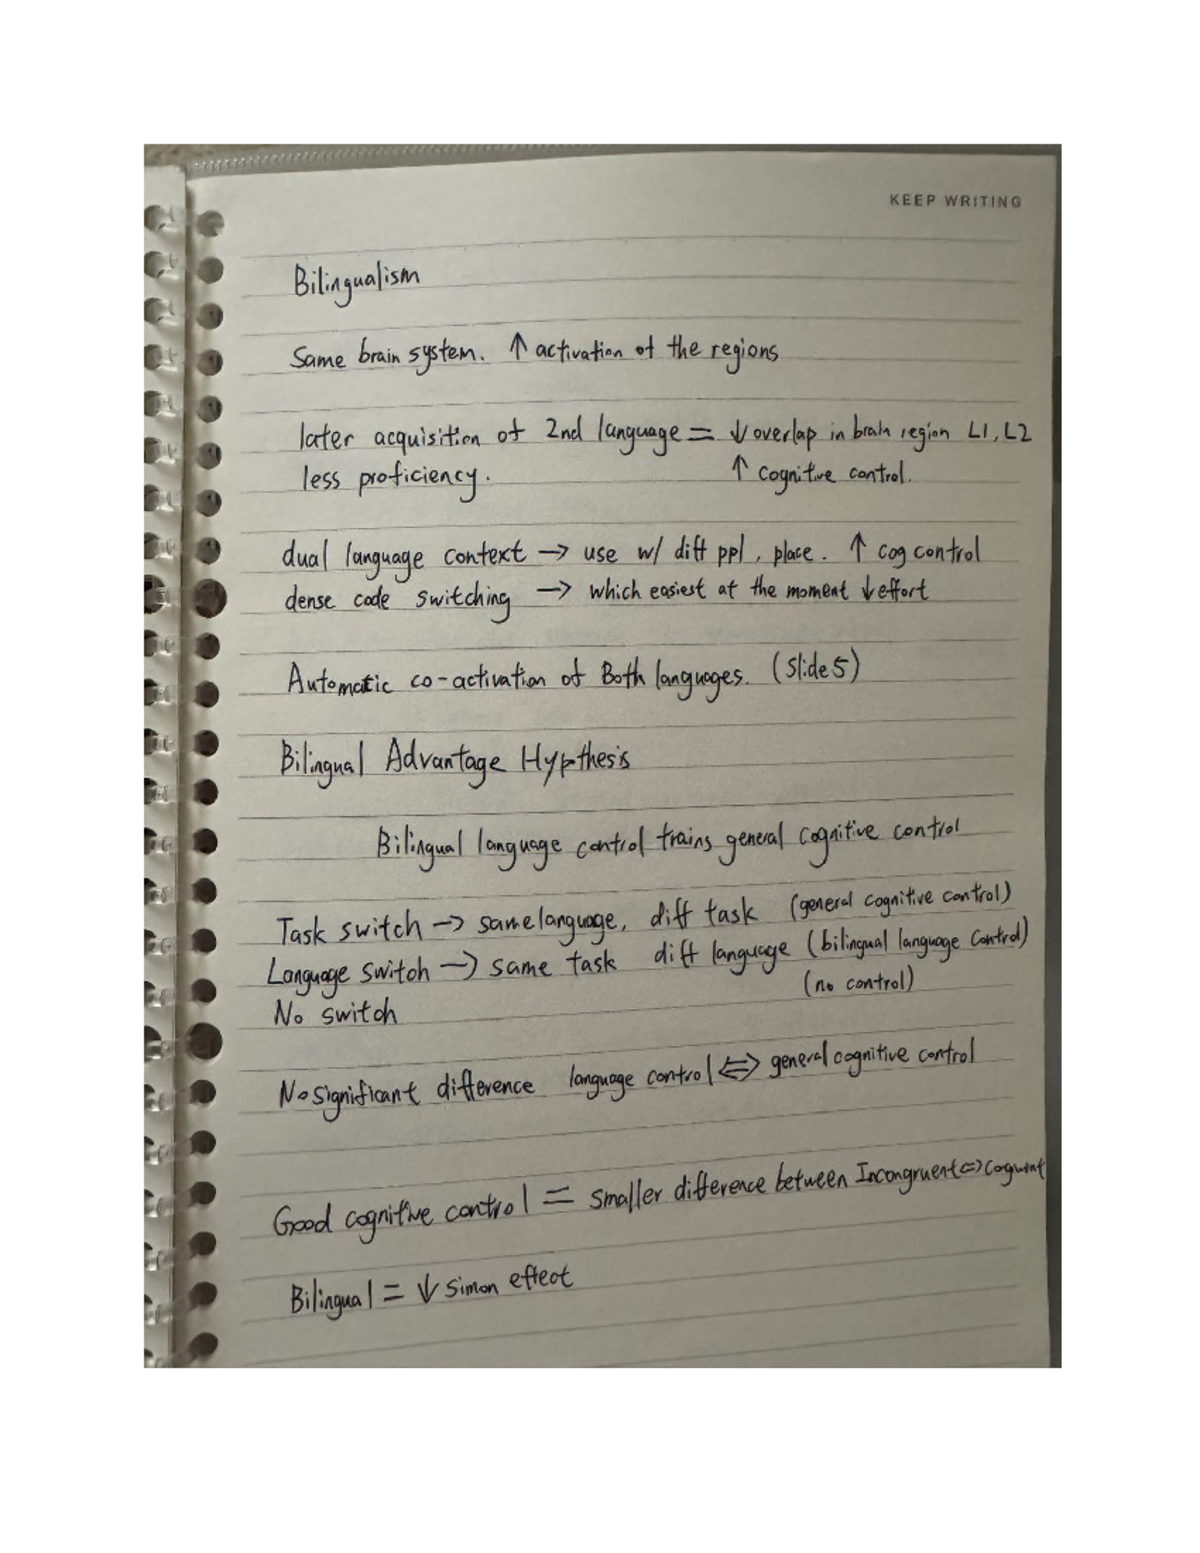 KEEP WRITING
Bilingualism
Same brain system. ↑ activation of the regions
later acquisition of 2nd language = ↓ overlap in brain region L1, L2
less proficiency. ↑ cognitive control.
dual language context → use w/ diff ppl, place. ↑ cog control
dense code switching → which easiest at the moment ↓ effort
Automatic co-activation of Both languages. (Slide 5)
Bilingual Advantage Hypothesis
Bilingual language control trains general cognitive control
Task switch → same language, diff task (general cognitive control)
Language switch → same task diff language (bilingual language control)
No switch (no control)
No significant difference language control ⇔ general cognitive control
Good cognitive control = smaller difference between Incongruent ⇔ Cogruent
Bilingual = ↓ Simon effect